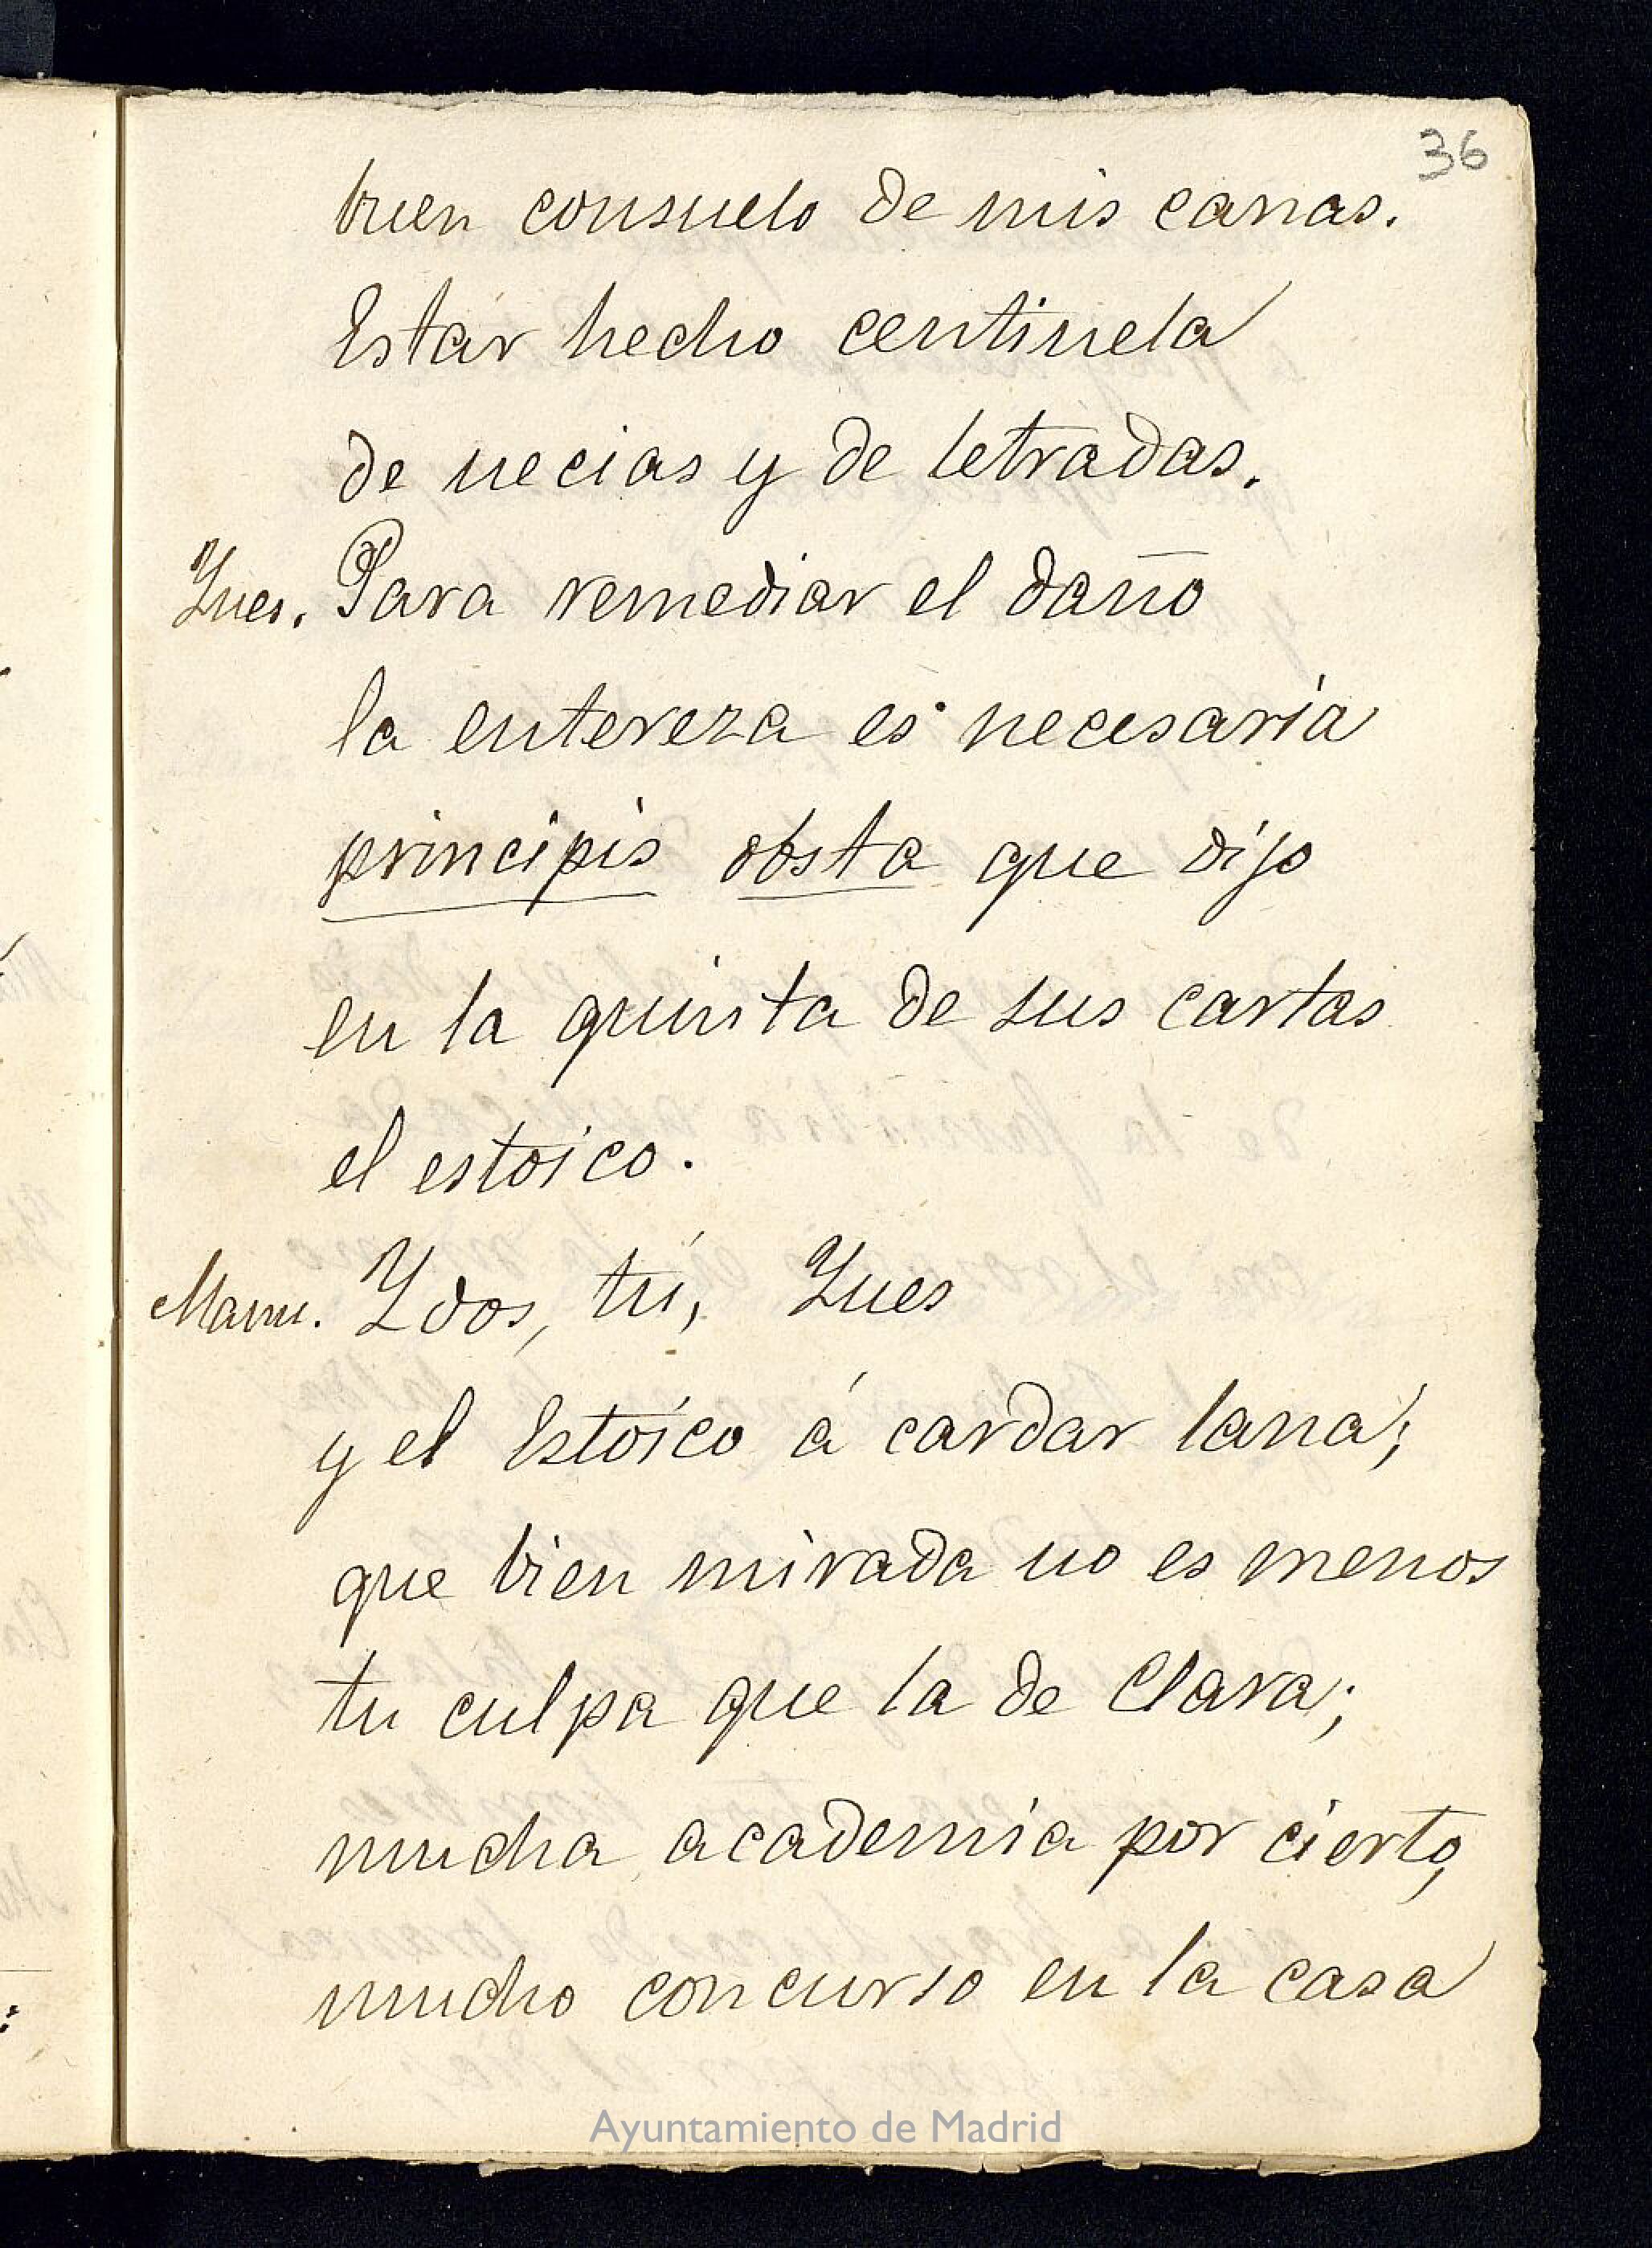 36
buen consuelo de mis canas.
Estar hecho centinela
de necias y de letradas.
Ynes. Para remediar el daño
la entereza es necesaria
principis obsta que dijo
en la quinta de sus cartas
el estoico.
Manu. Ydos, tú, Ynes
y el Estoico á cardar lana;
que bien mirada no es menos
tu culpa que la de Clara;
mucha academia por cierto,
mucho concurso en la casa
Ayuntamiento de Madrid